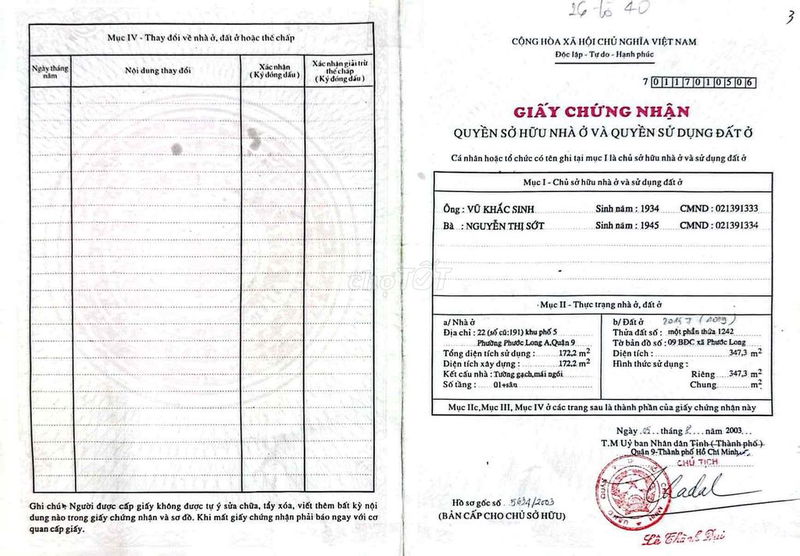 Mục IV - Thay đổi về nhà ở, đất ở hoặc thế chấp
Ngày tháng năm
Nội dung thay đổi
Xác nhận (Ký đóng dấu)
Xác nhận giải trừ thế chấp (Ký đóng dấu)
Ghi chú: Người được cấp giấy không được tự ý sửa chữa, tẩy xóa, viết thêm bất kỳ nội
dung nào trong giấy chứng nhận và sơ đồ. Khi mất giấy chứng nhận phải báo ngay với cơ
quan cấp giấy.
chợTỐT
26 tờ 40
3
CỘNG HÒA XÃ HỘI CHỦ NGHĨA VIỆT NAM
Độc lập - Tự do - Hạnh phúc
7 0117010506
GIẤY CHỨNG NHẬN
QUYỀN SỞ HỮU NHÀ Ở VÀ QUYỀN SỬ DỤNG ĐẤT Ở
Cá nhân hoặc tổ chức có tên ghi tại mục I là chủ sở hữu nhà ở và sử dụng đất ở
Mục I - Chủ sở hữu nhà ở và sử dụng đất ở
Ông : VŨ KHẮC SINH Sinh năm : 1934 CMND : 021391333
Bà : NGUYỄN THỊ SỚT Sinh năm : 1945 CMND : 021391334
Mục II - Thực trạng nhà ở, đất ở
a/ Nhà ở
Địa chỉ : 22 (số cũ:191) khu phố 5
Phường Phước Long A,Quận 9
Tổng diện tích sử dụng : 172,2 m2
Diện tích xây dựng : 172,2 m2
Kết cấu nhà : Tường gạch,mái ngói
Số tầng : 01+sân
b/ Đất ở
Thửa đất số : một phần thửa 1242
Tờ bản đồ số : 09 BĐC xã Phước Long
Diện tích : 347,3 m2
Hình thức sử dụng :
Riêng : 347,3 m2
Chung : m2
Mục IIc,Mục III, Mục IV ở các trang sau là thành phần của giấy chứng nhận này
Ngày 05 tháng 8 năm 2003
T.M Uỷ ban Nhân dân Tỉnh (Thành phố)
Quận 9-Thành phố Hồ Chí Minh
CHỦ TỊCH
Hồ sơ gốc số 5634/2003
(BẢN CẤP CHO CHỦ SỞ HỮU)